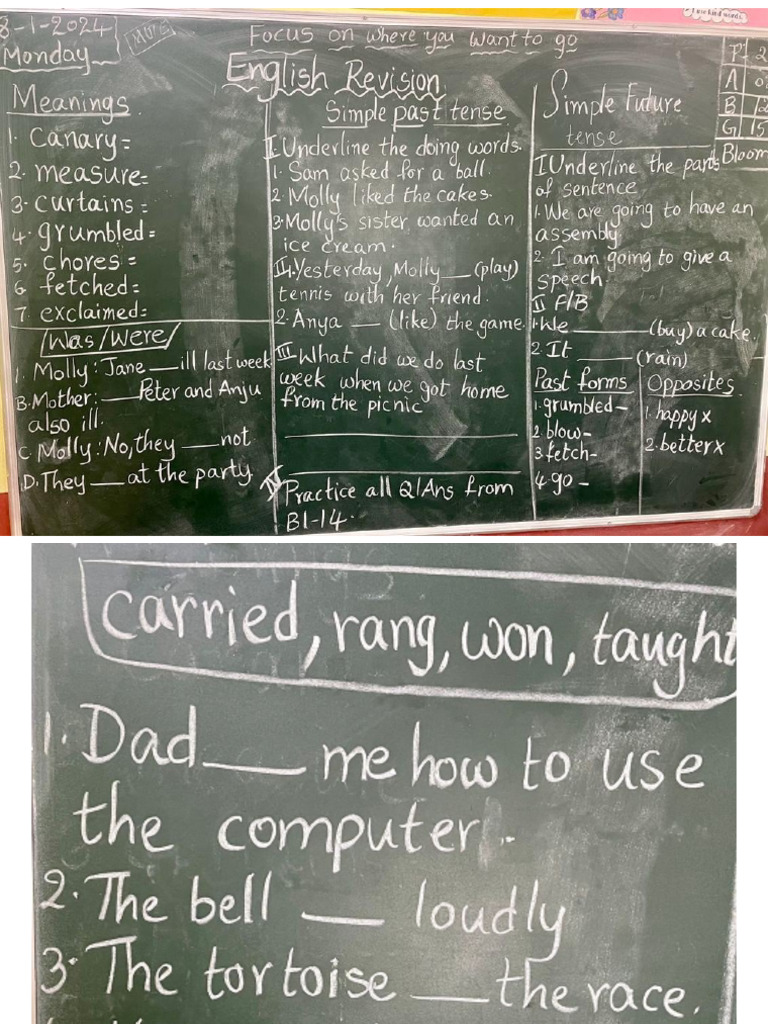 8-1-2024
Monday
MORE
Focus on where you want to go
English Revision
Meanings
1. Canary=
2. measure=
3. curtains=
4. grumbled=
5. chores=
6. fetched=
7. exclaimed=
Was/Were
1. Molly: Jane __ ill last week
B. Mother: __ Peter and Anju
also ill.
C. Molly: No, they __ not
D. They __ at the party
Simple past tense
I Underline the doing words.
1. Sam asked for a ball.
2. Molly liked the cakes.
3. Molly's sister wanted an
ice cream.
II 1. Yesterday, Molly __ (play)
tennis with her friend.
2. Anya __ (like) the game.
III What did we do last
week when we got home
from the picnic
IV Practice all Q/Ans from
B1-14.
Simple Future
tense
I Underline the parts
of sentence
1. We are going to have an
assembly
2. I am going to give a
speech
II F/B
1. We ____ (buy) a cake.
2. It ____ (rain)
Past forms
1. grumbled-
2. blow-
3. fetch-
4. go -
Opposites
1. happy x
2. better x
P 2
A
B
G 15
Bloom
carried, rang, won, taught
1. Dad __ me how to use
the computer.
2. The bell __ loudly
3. The tortoise __ the race.